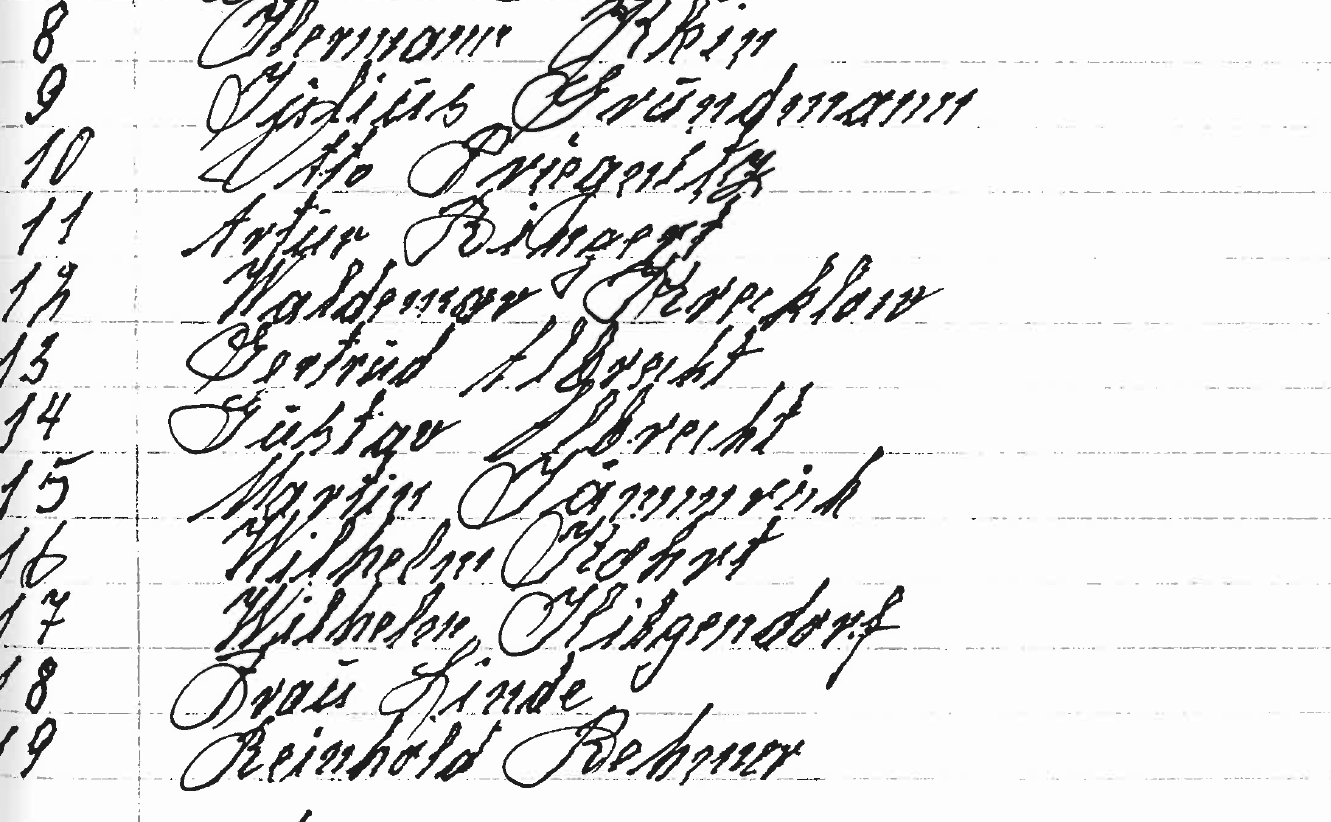 8 Hermann Klein
9 Julius Grundmann
10 Otto Priegnitz
11 Artur Ringert
12 Waldemar Krecklow
13 Gertrud Albrecht
14 Gustav Albrecht
15 Martin Jämmrich
16 Wilhelm
17 Wilhelm Hilgendorf
18 Frau Linde
19 Reinhold Rehmer